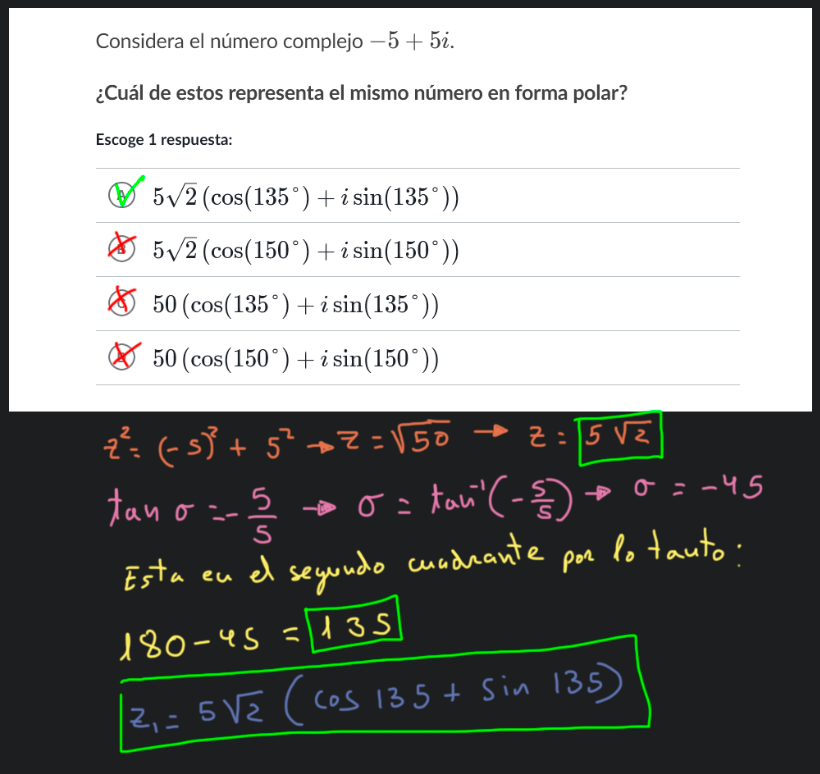 Considera el número complejo −5 + 5i.
¿Cuál de estos representa el mismo número en forma polar?
Escoge 1 respuesta:
A 5√2 (cos(135°) + i sin(135°))
5√2 (cos(150°) + i sin(150°))
50 (cos(135°) + i sin(135°))
50 (cos(150°) + i sin(150°))
z² = (-5)² + 5² → z = √50 → z = 5√2
tan σ = - 5/5 → σ = tan⁻¹(-5/5) → σ = -45
Esta en el segundo cuadrante por lo tanto:
180 - 45 = 135
z₁ = 5√2 (cos 135 + sin 135)